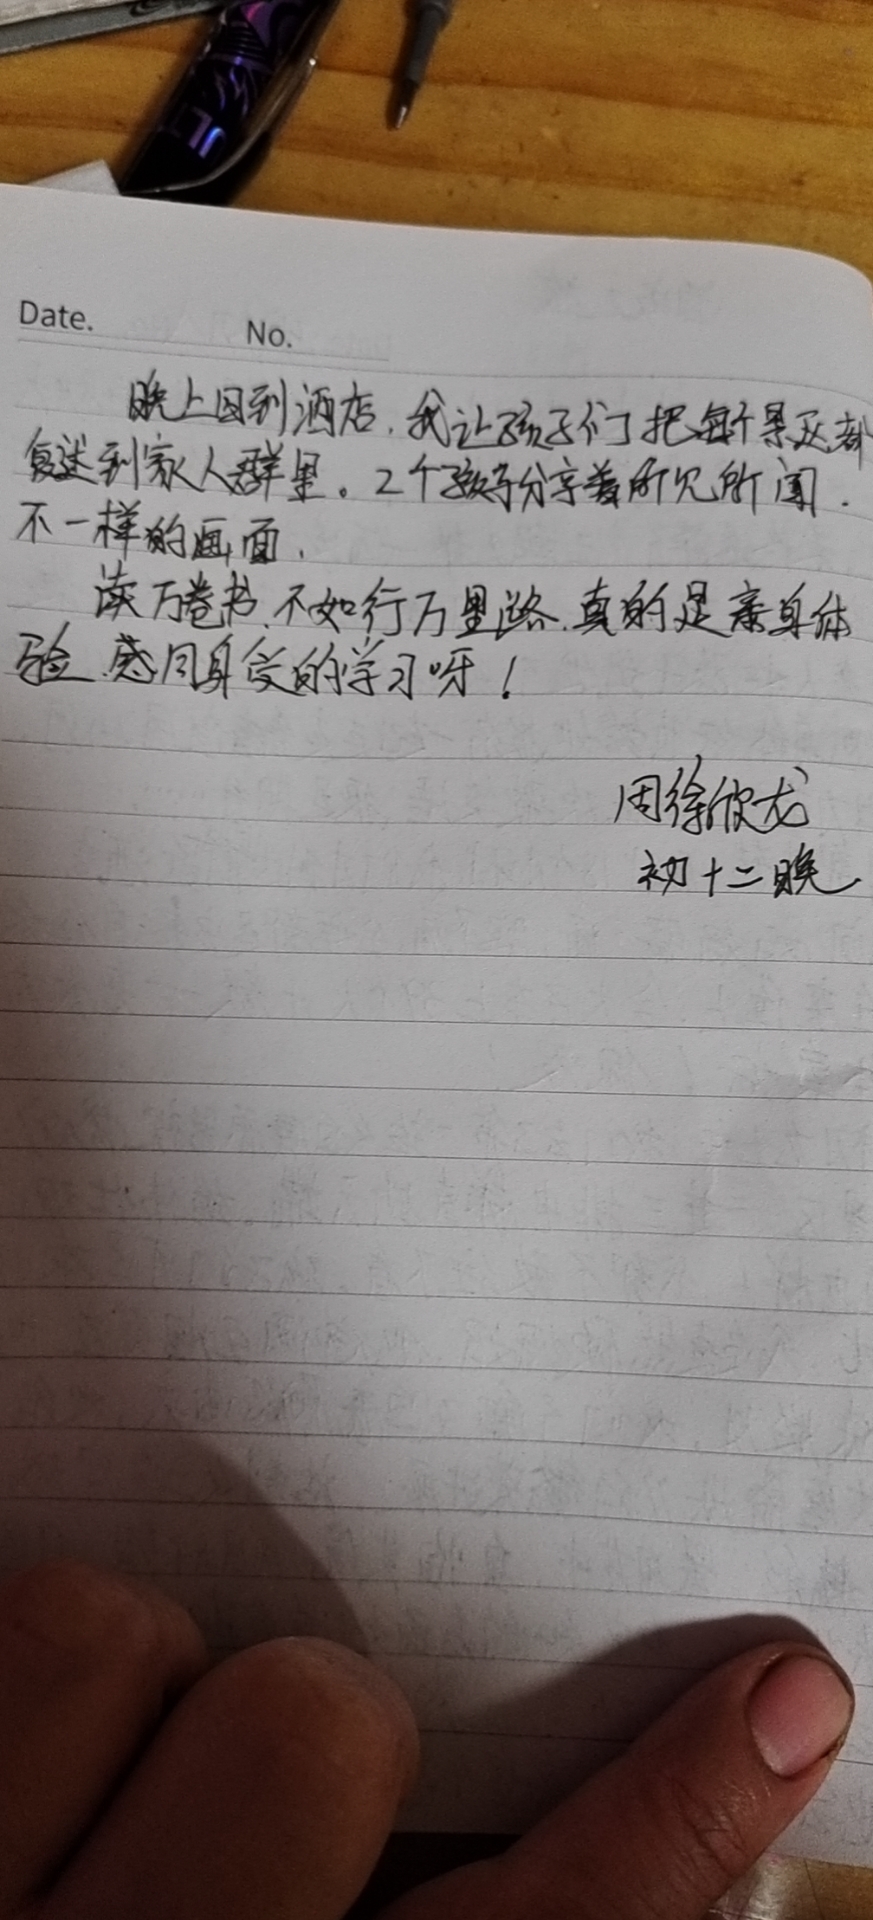 Date.
No.
晚上回到酒店，我让孩子们把每个景区都
复述到家人群里。2个孩子分享着所见所闻．
不一样的画面．
读万卷书、不如行万里路、真的是亲身体
验、感同身受的学习呀！
周徐欣龙
初十二晚